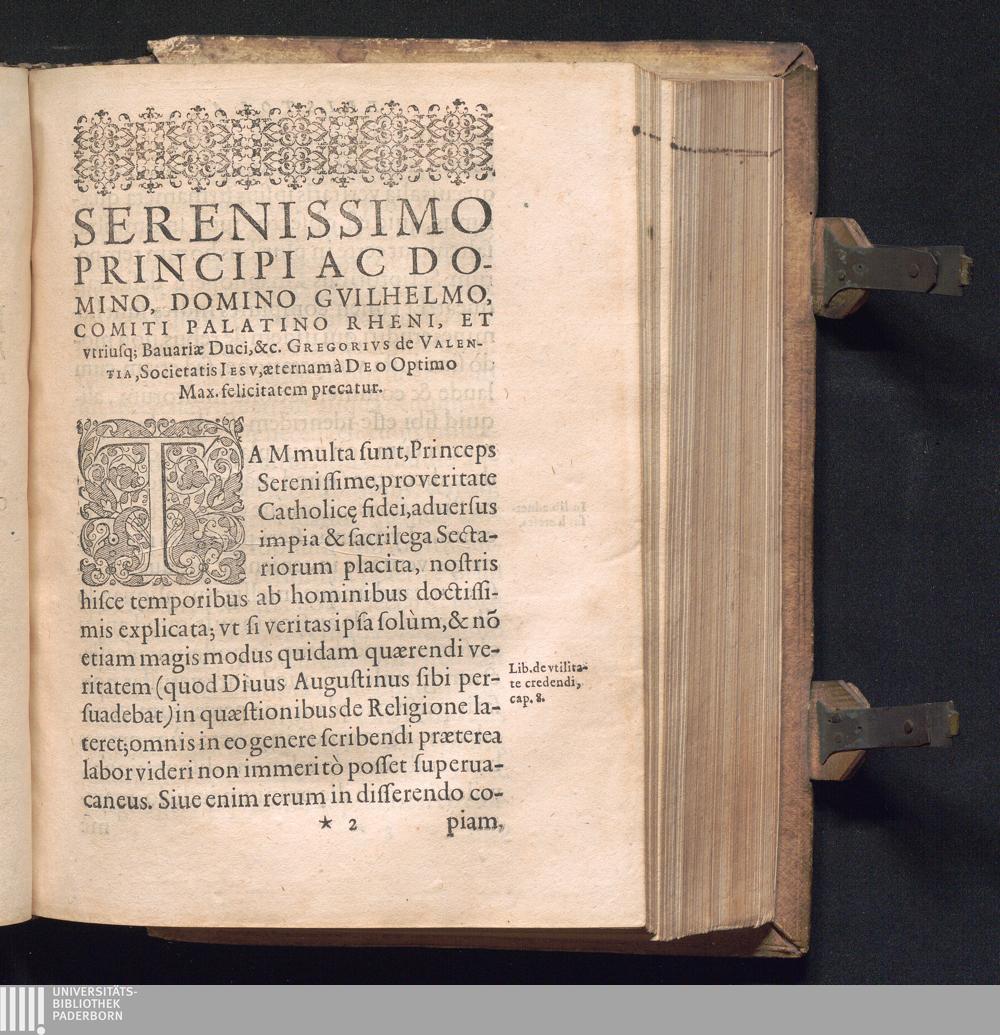 SERENISSIMO
PRINCIPI AC DO-
MINO, DOMINO GVILHELMO,
COMITI PALATINO RHENI, ET
vtriusq; Bauariæ Duci, &c. GREGORIVS de VALEN-
TIA, Societatis IESV, æternam à DEO Optimo
Max. felicitatem precatur.
TAM multa sunt, Princeps
Serenissime, pro veritate
Catholicę fidei, aduersus
impia & sacrilega Secta-
riorum placita, nostris
hisce temporibus ab hominibus doctissi-
mis explicata; vt si veritas ipsa solùm, & nõ
etiam magis modus quidam quærendi ve-
ritatem (quod Diuus Augustinus sibi per-
suadebat) in quæstionibus de Religione la-
teret; omnis in eo genere scribendi præterea
labor videri non immeritò posset superua-
caneus. Siue enim rerum in disserendo co-
Lib. de vtilita-
te credendi,
cap. 8.
★ 2 piam,
UNIVERSITÄTS-
BIBLIOTHEK
PADERBORN